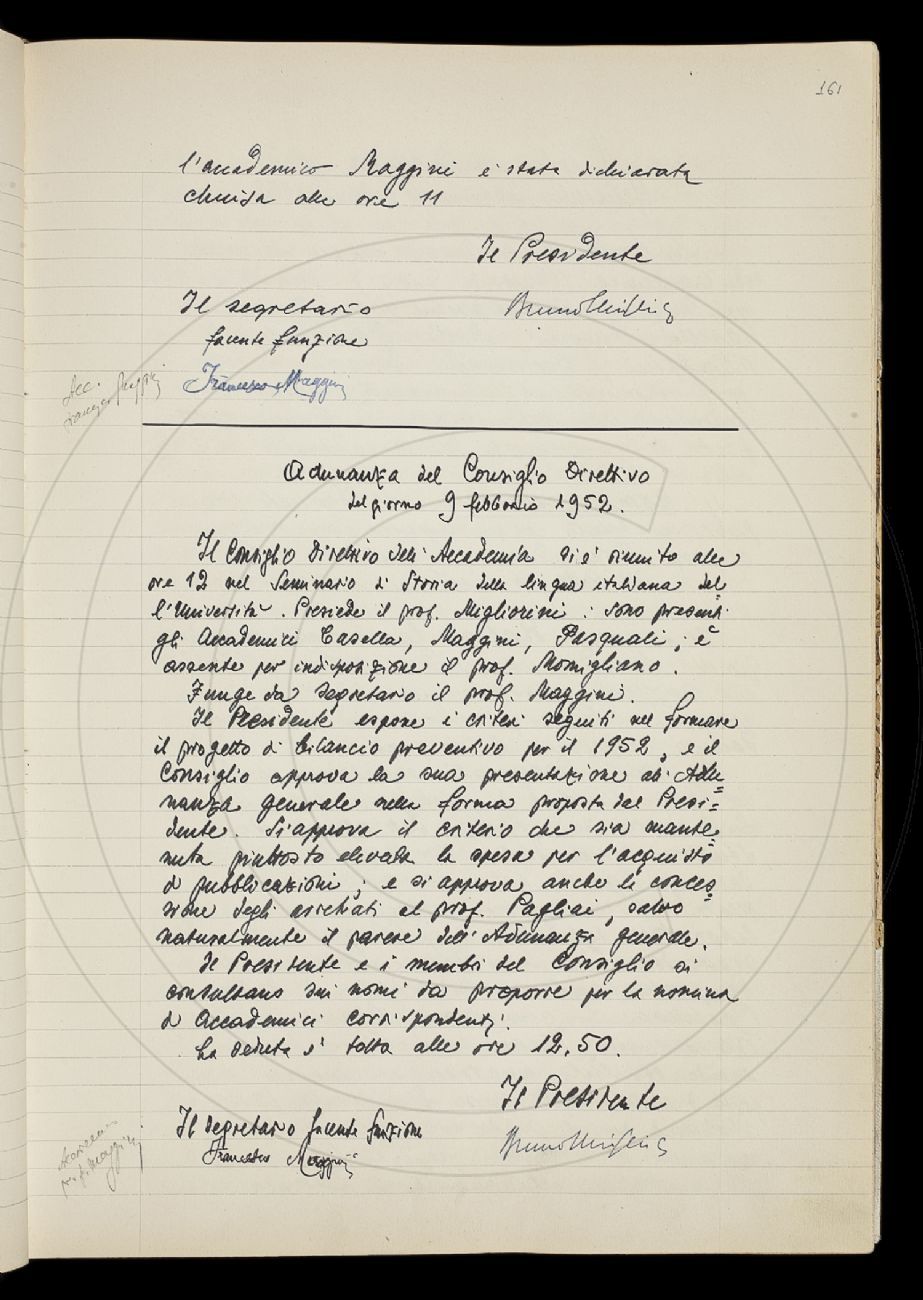 161
l'accademico Maggini è stata dichiarata
chiusa alle ore 11
Il Presidente
Bruno Migliorini
Il segretario
facente funzione
Francesco Maggini
Acc.
Francesco Maggini
Adunanza del Consiglio Direttivo
del giorno 9 febbraio 1952.
Il Consiglio Direttivo dell'Accademia si è riunito alle
ore 12 nel Seminario di Storia della lingua italiana del=
l'Università. Presiede il prof. Migliorini: sono presenti
gli Accademici Casella, Maggini, Pasquali; è
assente per indisposizione il prof. Momigliano.
Funge da segretario il prof. Maggini.
Il Presidente espone i criteri seguiti nel formare
il progetto di bilancio preventivo per il 1952, e il
Consiglio approva la sua presentazione all'Adu=
nanza generale nella forma proposta dal Presi=
dente. Si approva il criterio che sia mante=
nuta piuttosto elevata la spesa per l'acquisto
di pubblicazioni; e si approva anche la conces=
sione degli arretrati al prof. Pagliai, salvo
naturalmente il parere dell'Adunanza generale.
Il Presidente e i membri del Consiglio si
consultano sui nomi da proporre per la nomina
di Accademici corrispondenti.
La seduta è tolta alle ore 12.50.
Il Presidente
Il Segretario facente funzione
Bruno Migliorini
Francesco Maggini